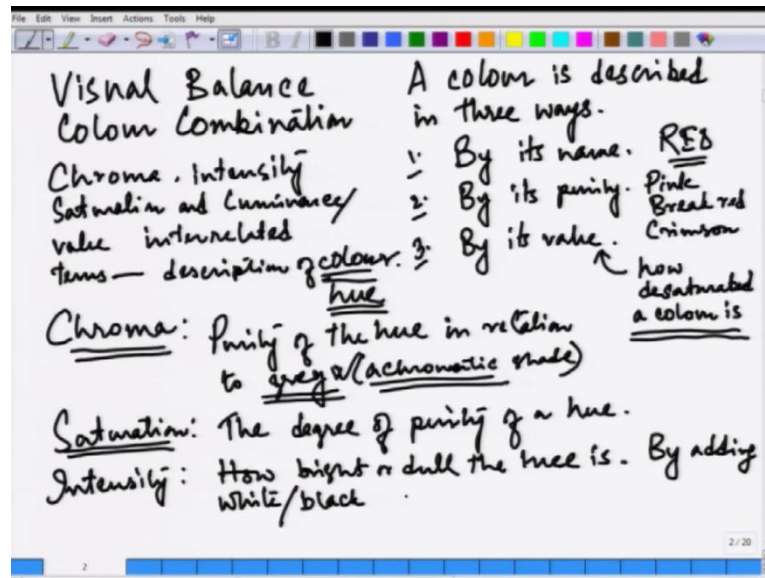 File Edit View Insert Actions Tools Help
Visual Balance
Colour Combination
Chroma. Intensity
Saturation and Luminance/
value interrelated
terms — description of colour.
hue
A colour is described
in three ways.
1. By its name. RED
2. By its purity. Pink
Break red
Crimson
3. By its value.
how
desaturated
a colour is
Chroma: Purity of the hue in relation
to grey (achromatic shade)
Saturation: The degree of purity of a hue.
Intensity: How bright or dull the hue is. By adding
white/black
2 / 20
2